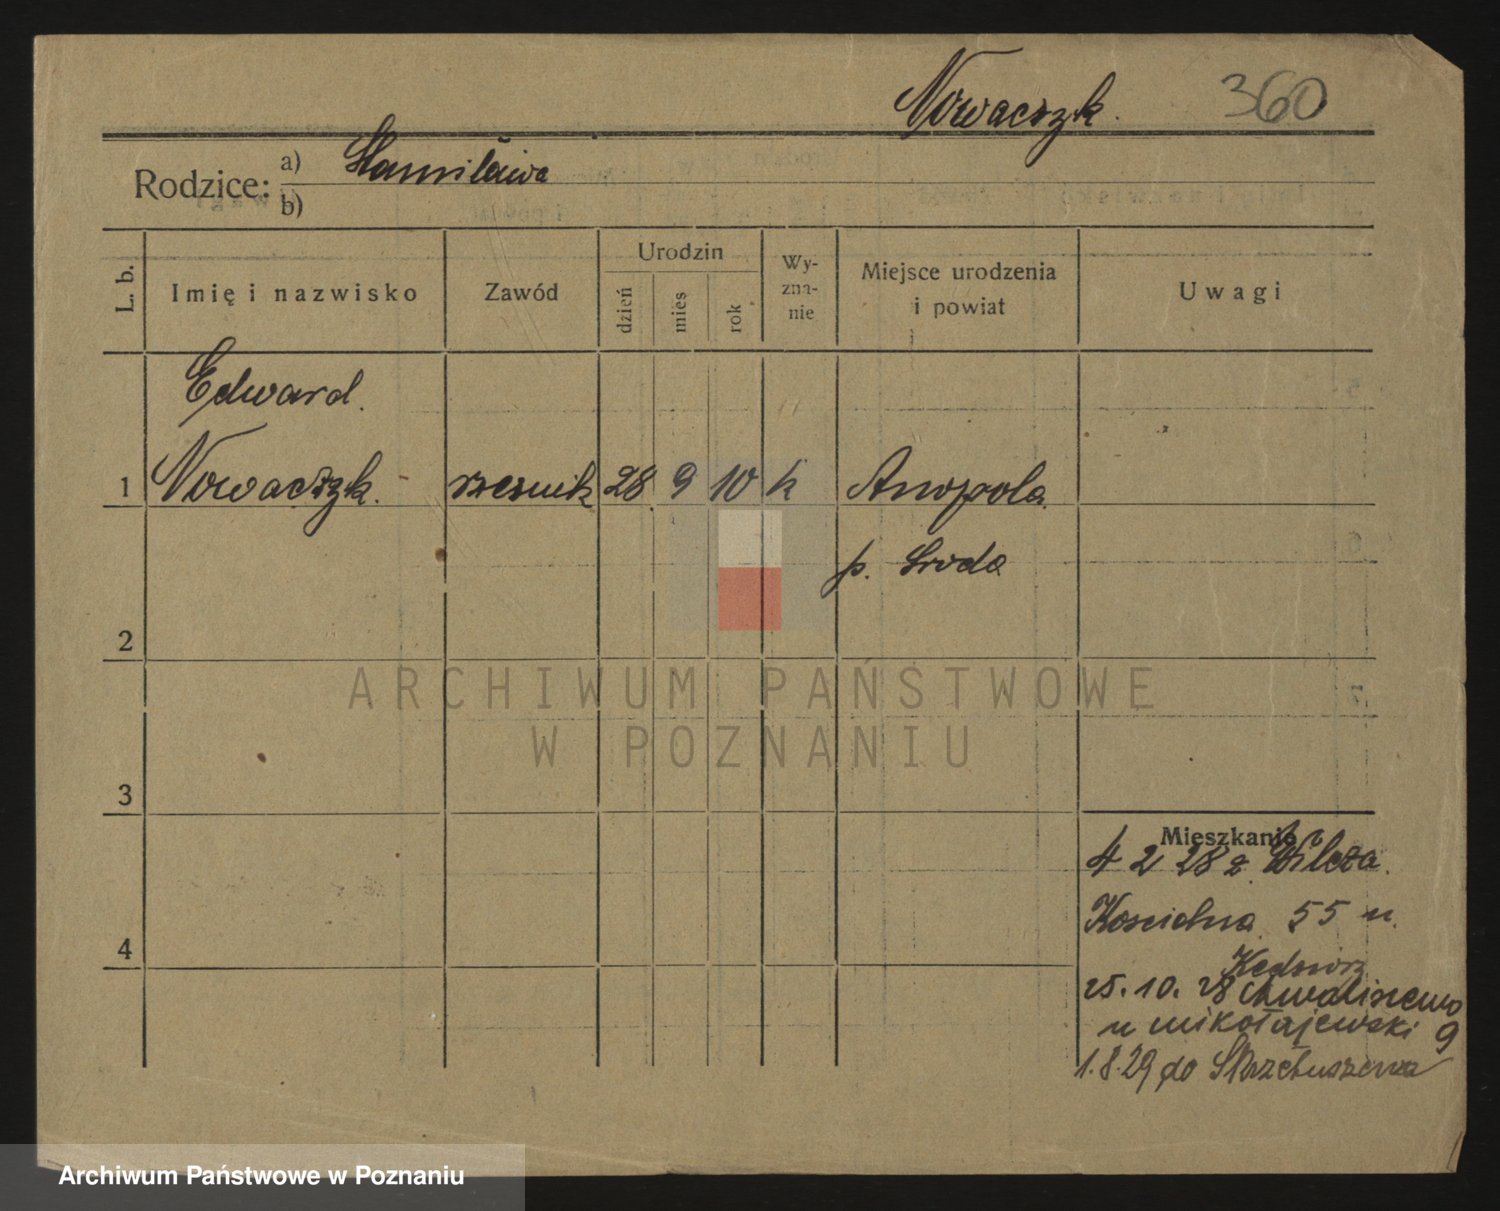 Nowaczyk. 360
Rodzice: a) Stanisława
b)
L. b. Imię i nazwisko Zawód Urodzin dzień mies rok Wyznanie Miejsce urodzenia i powiat Uwagi
Edward
1 Nowaczyk. rzeźnik 28 9 10 k Anopola
p. Środa
2
3
4
Mieszkanie
4 2 28 z Wilcza.
Kościelna 55 u.
25.10.28 Chwaliszewo
u Mikołajewski 9
1.8.29 do
ARCHIWUM PAŃSTWOWE
W POZNANIU
Archiwum Państwowe w Poznaniu